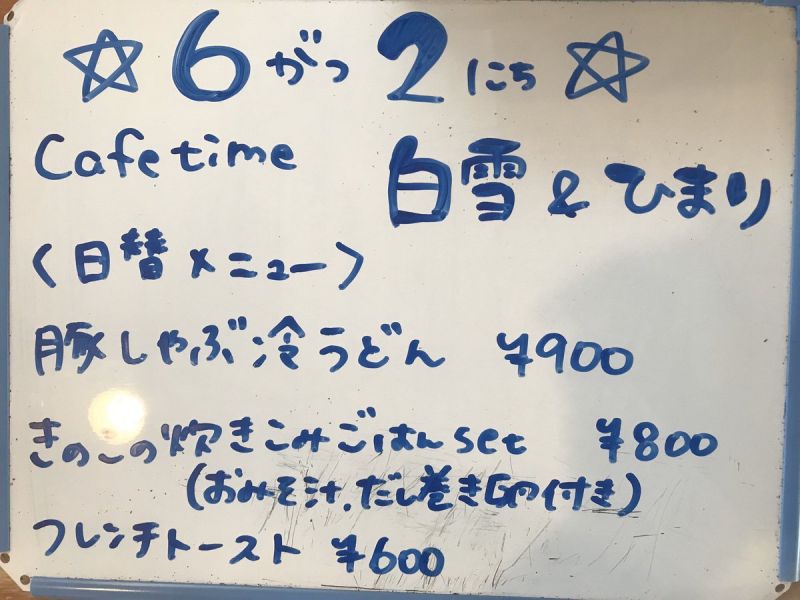 ☆ 6がつ2にち ☆
Cafe time 白雪 & ひまり
〈日替メニュー〉
豚しゃぶ冷うどん ¥900
きのこの炊きこみごはんset ¥800
(おみそ汁、だし巻き卵付き)
フレンチトースト ¥600